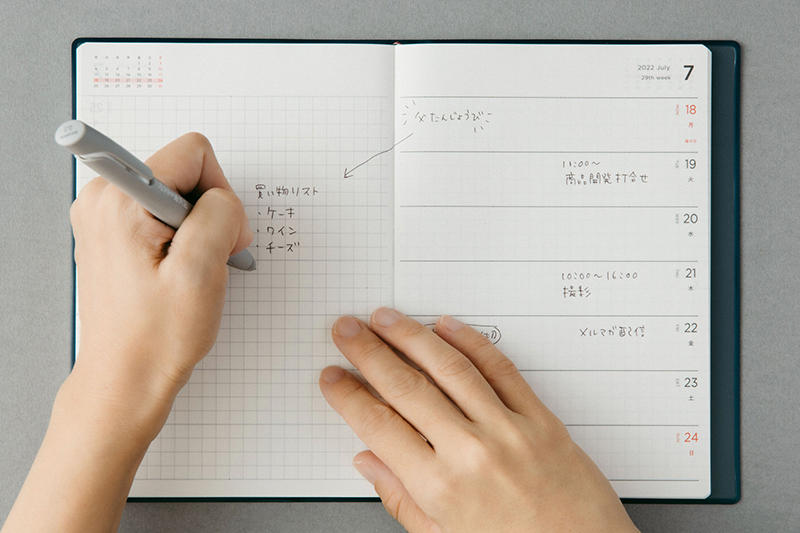 2022 July
29th week
7
18
月
父たんじょうび
19
火
11:00〜
商品開発打合せ
20
水
21
木
10:00〜16:00
撮影
22
金
メルマガ配信
23
土
24
日
買い物リスト
・ケーキ
・ワイン
・チーズ